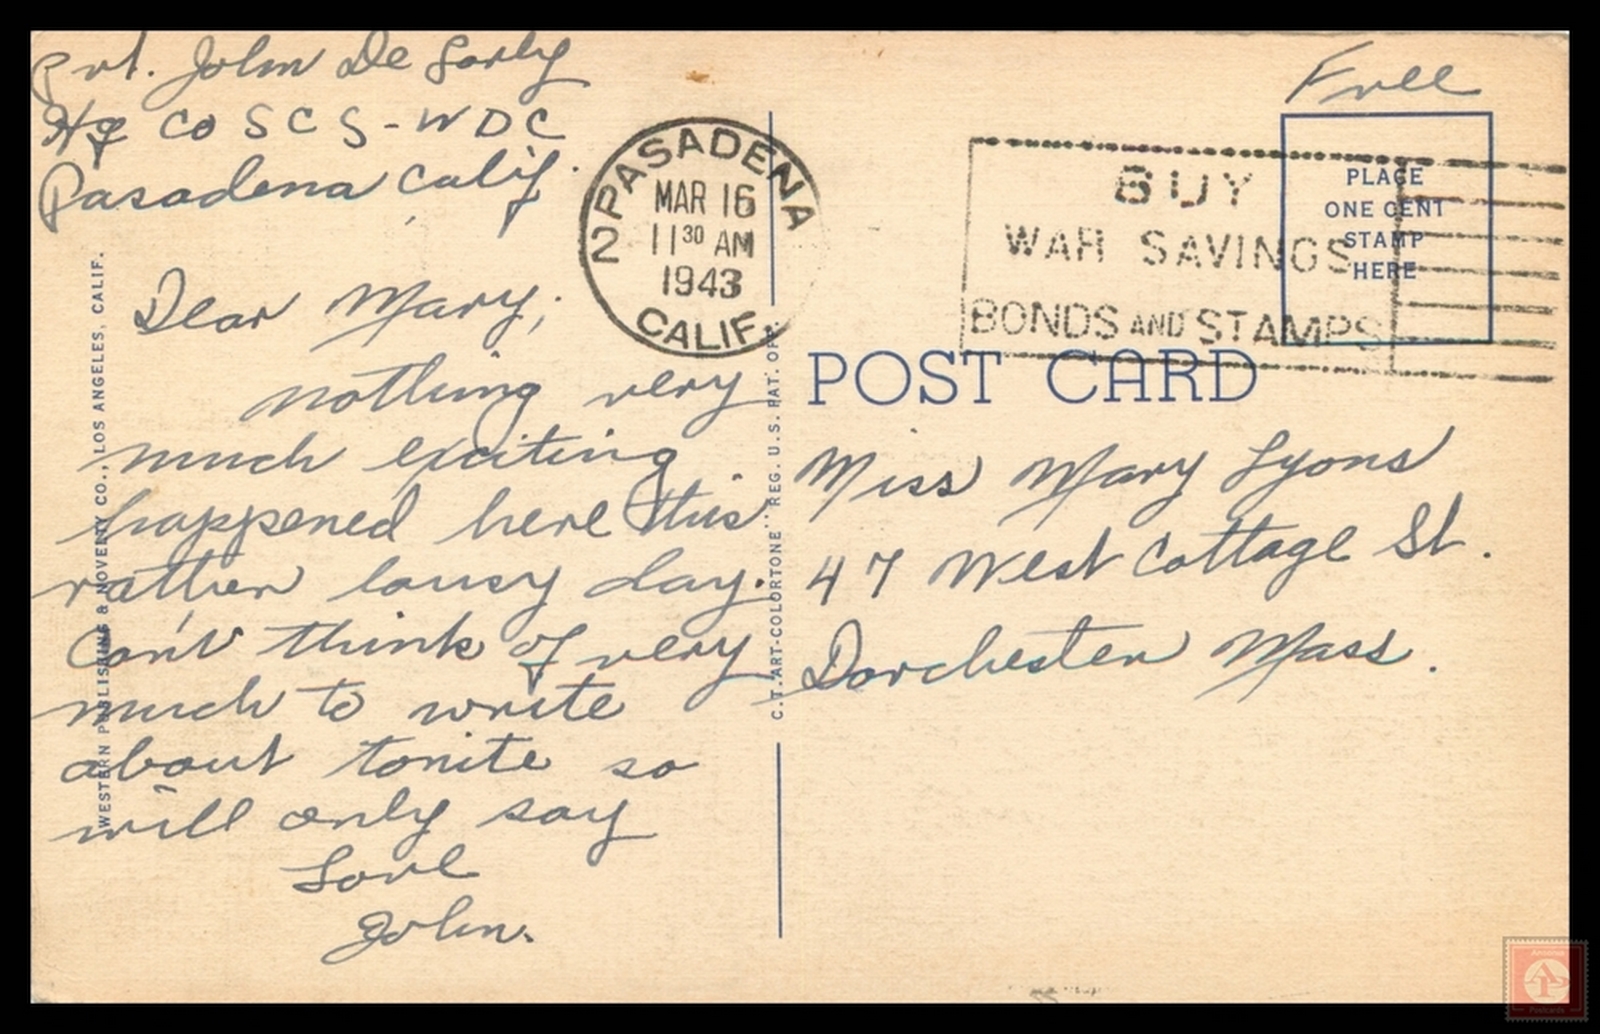 Pvt. John De Sorly
Hq Co S C S - W D C
Pasadena Calif.
Free
2 PASADENA CALIF.
MAR 16
11 30 AM
1943
BUY
WAR SAVINGS
BONDS AND STAMPS
PLACE
ONE CENT
STAMP
HERE
Dear Mary,
nothing very
much exciting
happened here this
rather lousy day.
Can't think of very
much to write
about tonite so
will only say
Love
John.
WESTERN PUBLISHING & NOVELTY CO., LOS ANGELES, CALIF.
C.T. ART-COLORTONE" REG. U.S. PAT. OFF.
POST CARD
Miss Mary Lyons
47 West Cottage St.
Dorchester Mass.